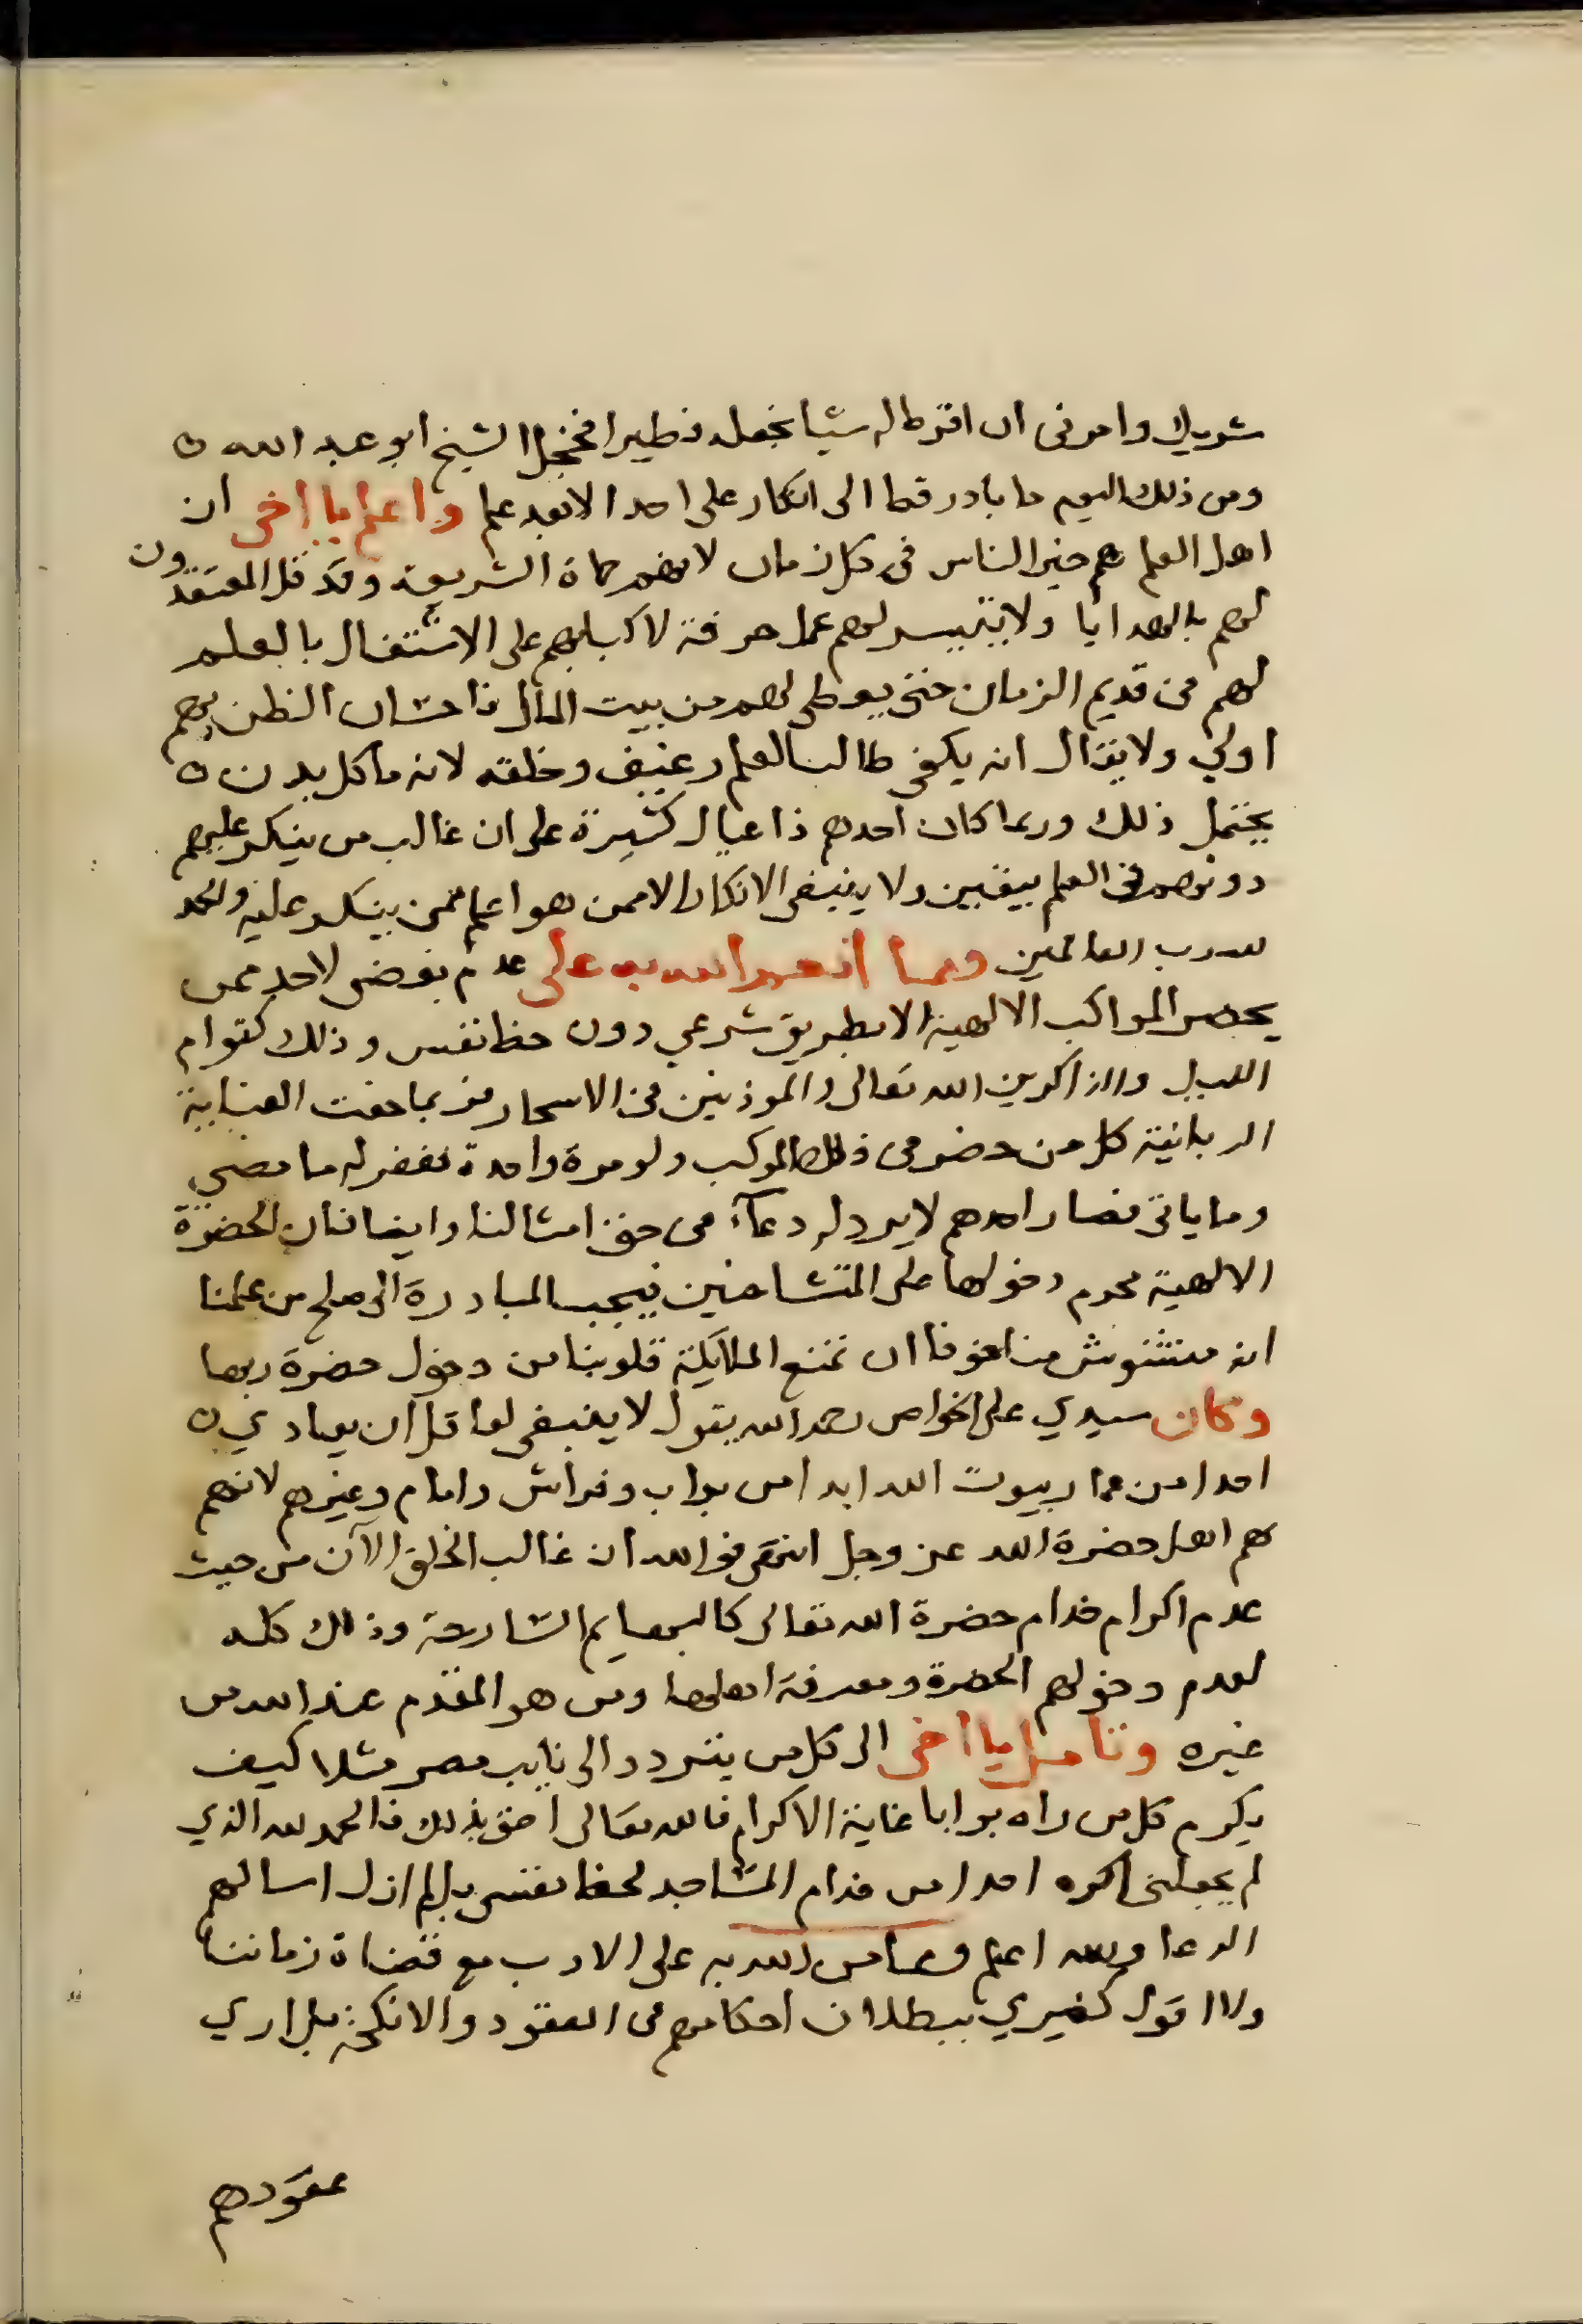 شريك وامرنى ان اقترط له شيا نجعله فطيرا فخجل الشيخ ابو عبد الله ه
ومن ذلك اليوم ما بادرقط الى انكار على احد الا بعد علم واعلم يا اخى ان
اهل العلم هم خير الناس فى كل زمان لانهم حماة الشريعة وقد قل المعتقدون
لهم بالهدايا ولا يتيسر لهم عمل حرفة لاكبابهم على الاشتغال بالعلم
لهم من قديم الزمان حتى يعطى لهم من بيت المال فاحسان الظن بهم
اولي ولا يقال انه يكفى طالب العلم رغيف وخلقه لانه ما كل بدن ه
يحتمل ذلك وربما كان احدهم ذا عيال كثيرة على ان غالب من ينكر عليهم
دونهم فى العلم بيقين ولا ينبغى الانكار الا ممن هو اعلم ممن ينكر عليه والحمد
لله رب العالمين ومما انعم الله به على عدم بغضى لاحد ممن
يحضر المواكب الالهية الا بطريق شرعي دون حظ نفس وذلك كقوام
الليل والذاكرين الله تعالى والموذنين فى الاسحار فربما حفت العناية
الربانية كل من حضر فى ذلك الموكب ولو مرة واحدة فغفر له ما مضى
وما ياتى فصار احدهم لا يرد له دعآء فى حق امثالنا وايضا فان الحضرة
الالهية محرم دخولها على المتشاحنين فيجب المبادرة الى صلح من علمنا
انه متشوش منا خوفا ان تمنع الملايكة قلوبنا من دخول حضرة ربها
وكان سيدي على الخواص رحمه الله يقول لا ينبغى لعاقل ان يعادي ه
احدا من عمار بيوت الله ابدا من بواب وفراش وامام وغيرهم لانهم
هم اهل حضرة الله عز وجل انتهى فوالله ان غالب الخلق الآن من حيث
عدم اكرام خدام حضرة الله تعالى كالبهايم السارحة وذلك كله
لعدم دخولهم الحضرة ومعرفة اهلها ومن هو المقدم عند الله من
غيره وتامل يا اخى الى كل من يتردد الى نايب مصر مثلا كيف
يكرم كل من راه بوابا غاية الاكرام فالله تعالى احق بذلك فالحمد لله الذي
لم يجعلنى اكره احدا من خدام المساجد لحظ نفسى بل لم ازل اسالهم
الدعا والله اعلم ومما من الله به على الادب مع قضاة زماننا
ولا اقول كغيري ببطلان احكامهم فى العقود والانكحة بل اري
عقودهم